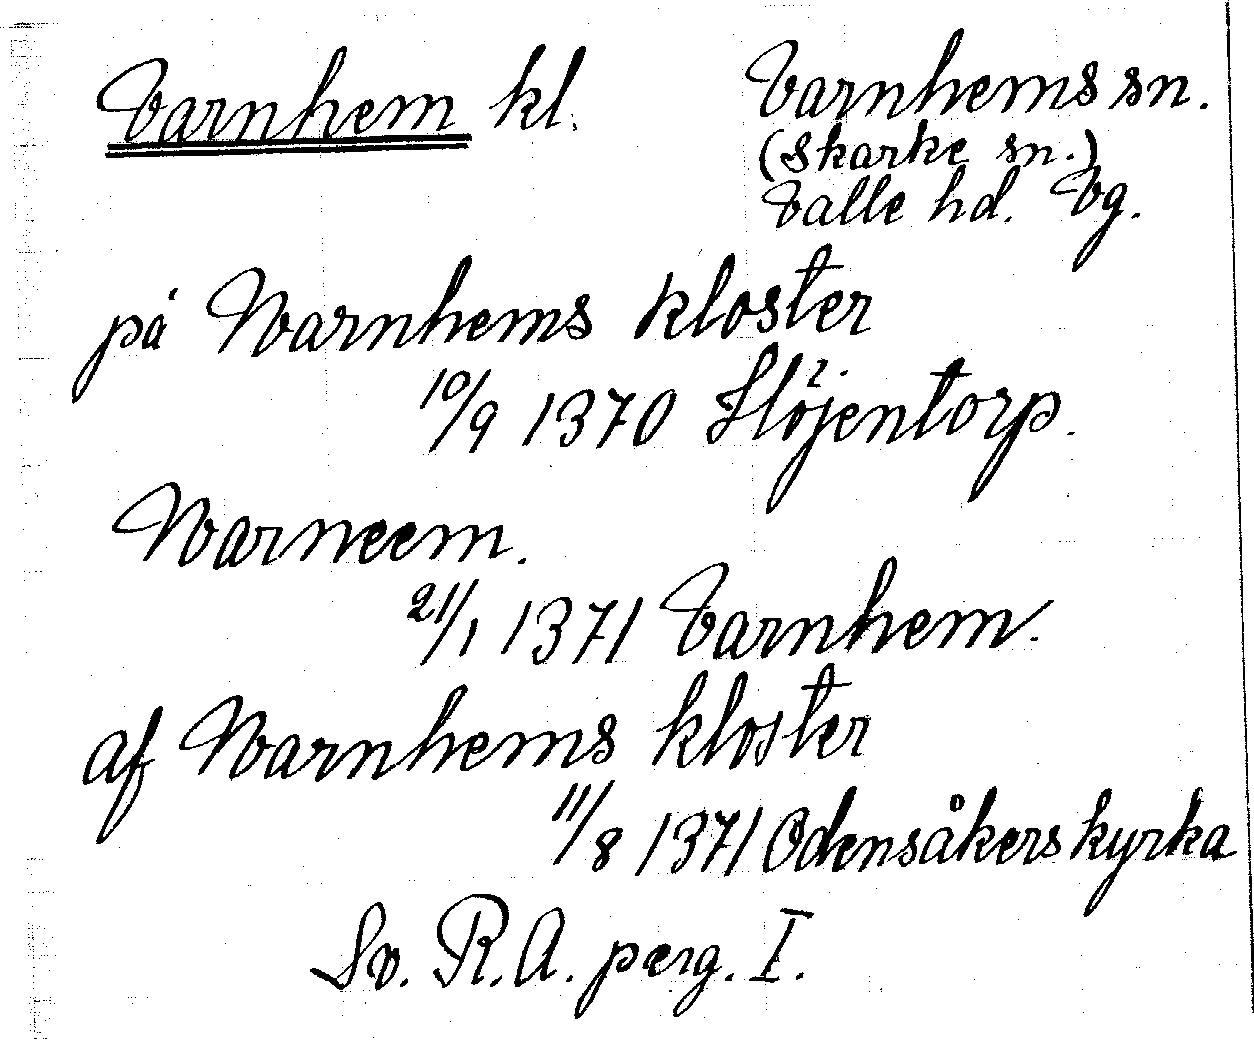 Varnhem kl.
Varnhems sn.
(Skarke sn.)
Valle hd. Vg.
på Warnhems kloster
10/9 1370 Höjentorp.
Warneem.
21/1 1371 Varnhem.
af Warnhems kloster
11/8 1371 Odensåkers kyrka
Sv. R.A. perg. I.